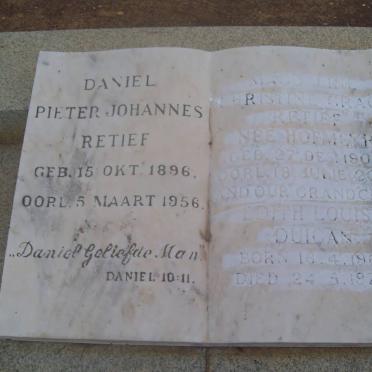 DANIEL
PIETER JOHANNES
RETIEF
GEB. 15 OKT. 1896.
OORL. 5 MAART 1956.
„Daniel Geliefde Man"
DANIEL 10:11.
RETIEF
NEE HOFMEYR
GEB. 27 DES.
OORL. 18 JUNIE
AND OUR GRANDC
EDITH LOUIS
DUIGAN
BORN 14.4.
DIED 24.5.